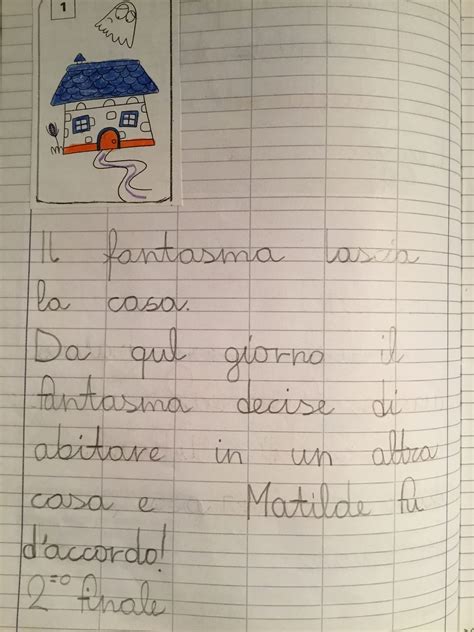 1
Il fantasma lascia
la casa.
Da qul giorno il
fantasma decise di
abitare in un altra
casa e Matilde fu
d'accordo!
2=° finale